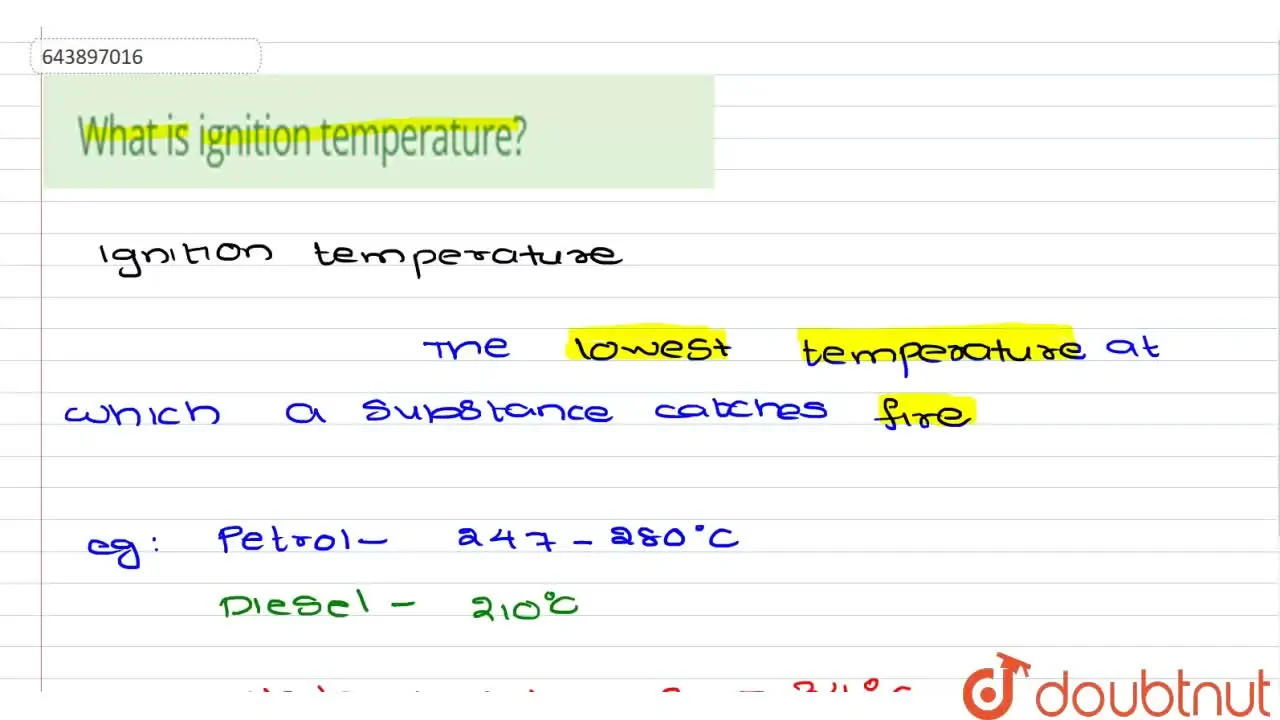 643897016
What is ignition temperature?
Ignition temperature
The lowest temperature at
which a substance catches fire
eg: Petrol - 247 - 280°C
Diesel - 210°C
doubtnut